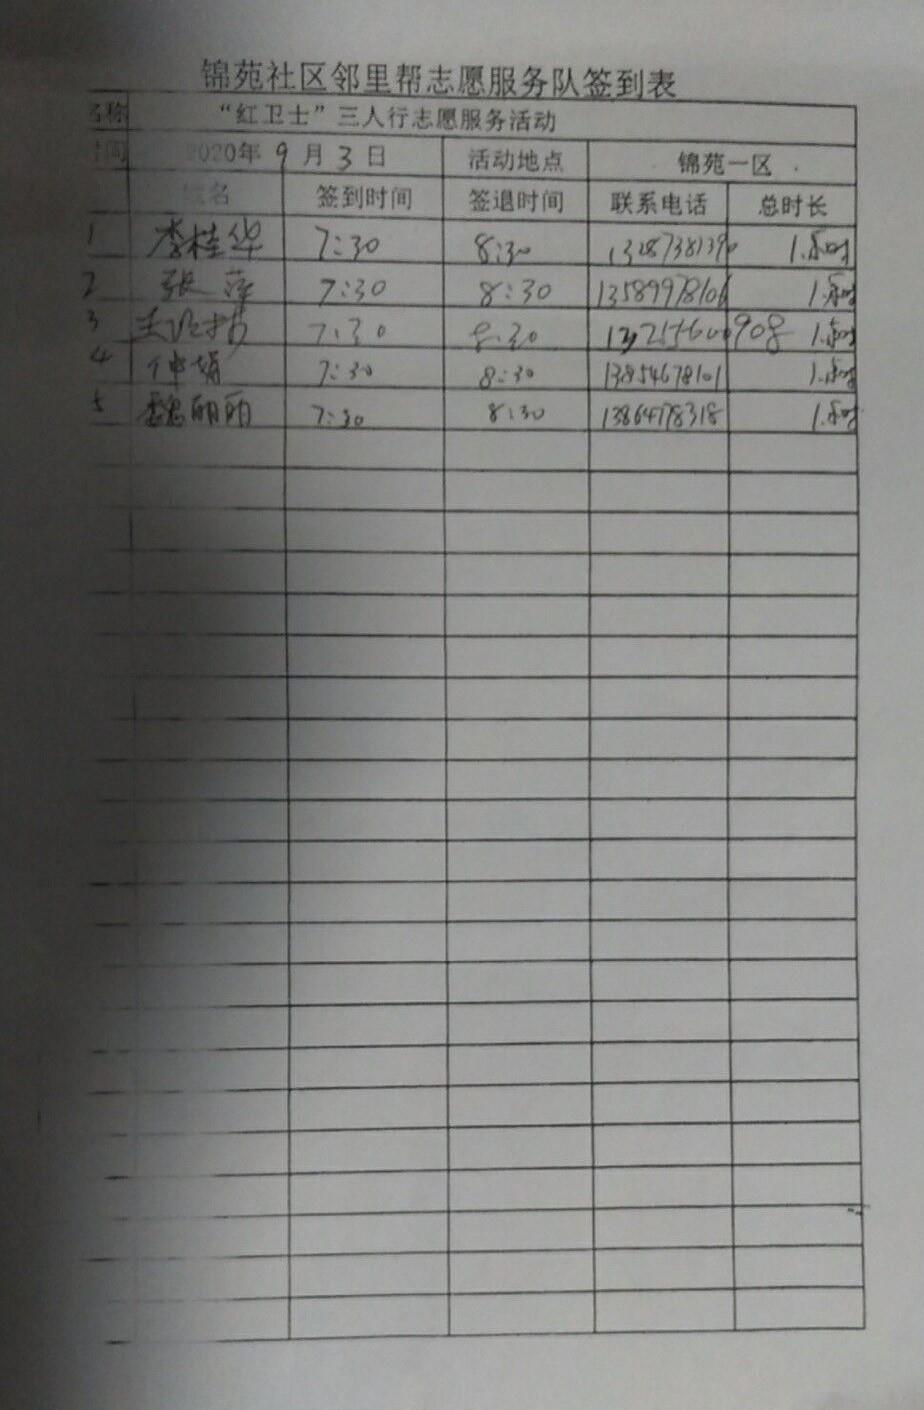 锦苑社区邻里帮志愿服务队签到表
名称 “红卫士”三人行志愿服务活动
时间 2020年9月3日 活动地点 锦苑一区
姓名 签到时间 签退时间 联系电话 总时长
1 李桂华 7:30 8:30 1.小时
2 张 7:30 8:30 1.小时
3 7:30 8:30 1.小时
4 仲娟 7:30 8:30 13854678101 1.小时
5 魏丽丽 7:30 8:30 13864778318 1.小时